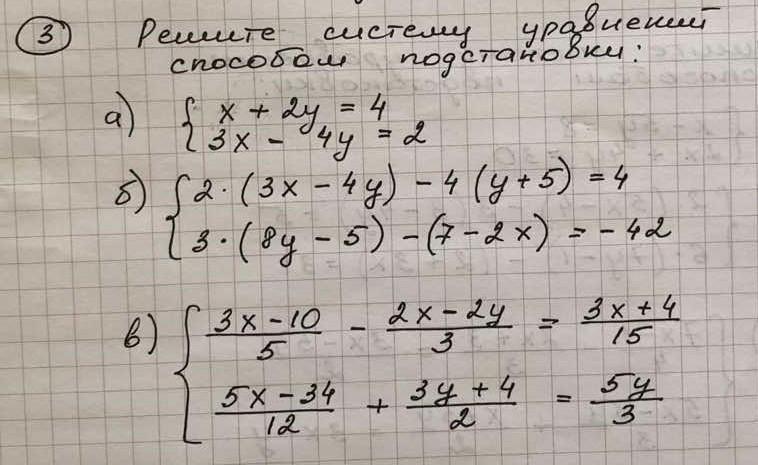 3 Решите систему уравнений
способом подстановки:
а) { x + 2y = 4
3x - 4y = 2
б) { 2·(3x - 4y) - 4(y + 5) = 4
3·(8y - 5) - (7 - 2x) = - 42
в) { (3x - 10)/5 - (2x - 2y)/3 = (3x + 4)/15
(5x - 34)/12 + (3y + 4)/2 = 5y/3